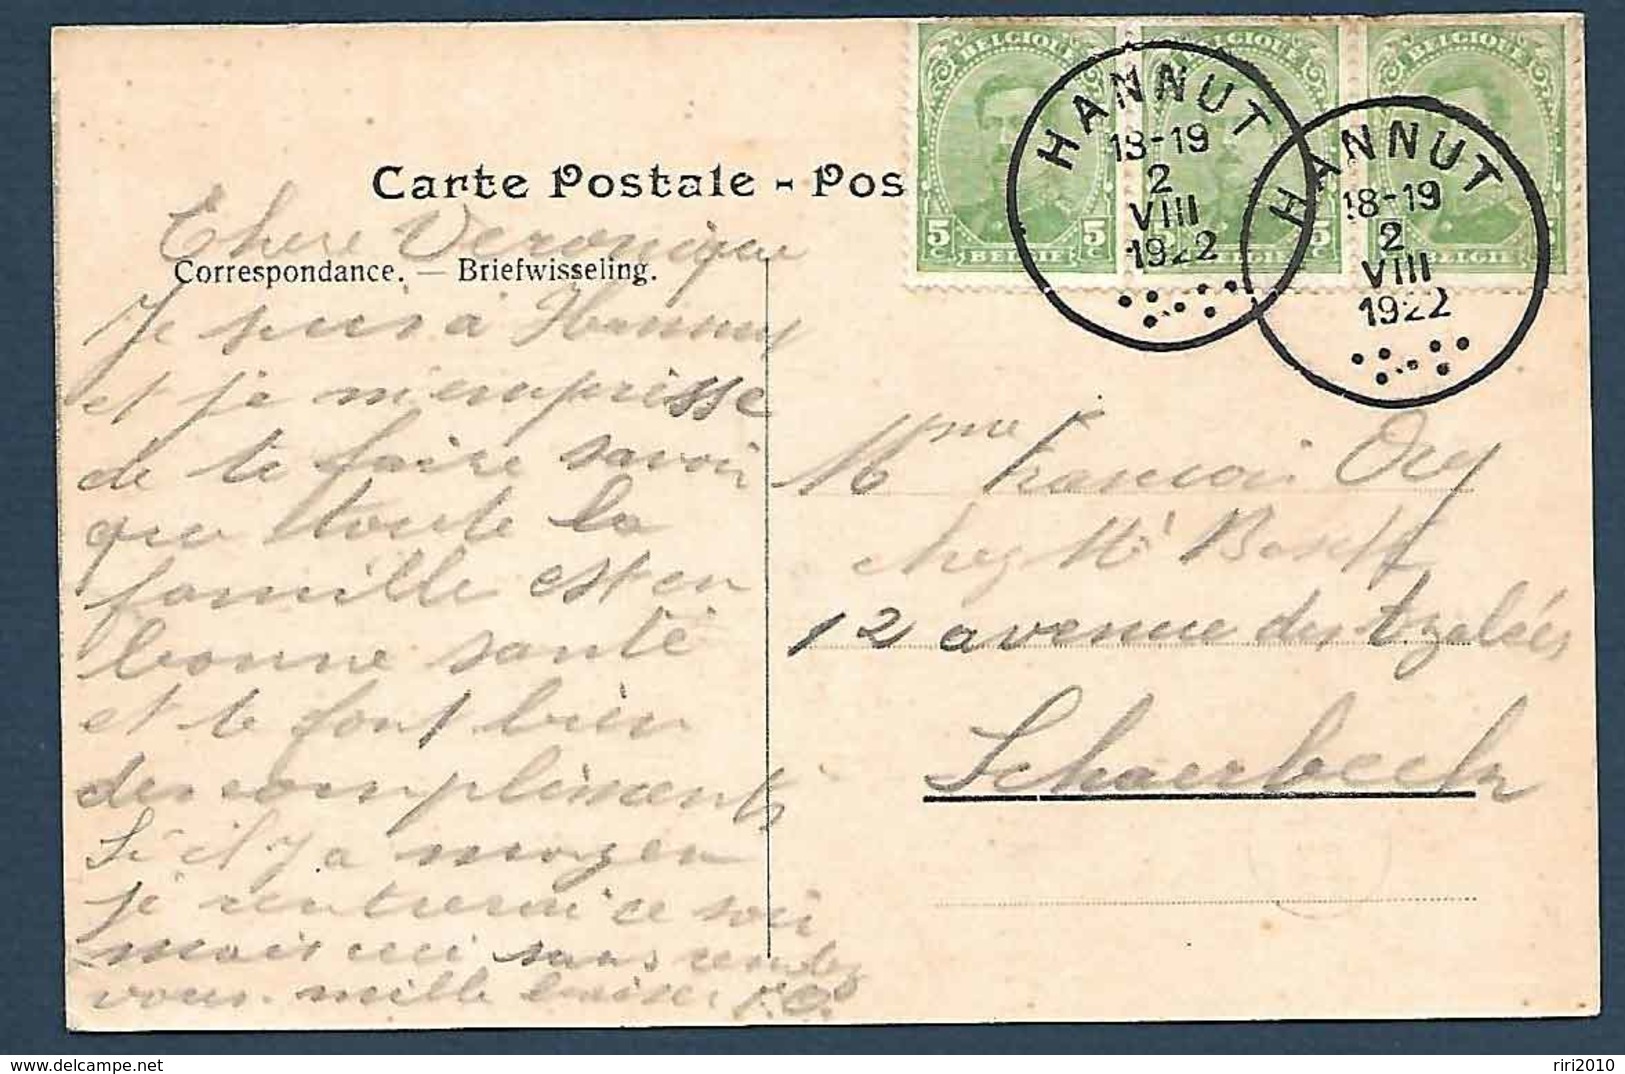 Carte Postale - Pos
Correspondance. — Briefwisseling.
Chere Veronique
Je suis a Hannut
et je m'empresse
de te faire savoir
que toute la
famille est en
bonne santé
et te font bien
des compliments
Si il y a moyen
je rentrerai ce soir
mais ceci sans rendez
vous. mille baisers F.O.
BELGIQUE
5 C 5 C
BELGIË
BELGIQUE
5 C
BELGIË
BELGIQUE
5 C
BELGIË
HANNUT
18-19
2
VIII
1922
HANNUT
18-19
2
VIII
1922
Mme François Ory
chez Mr
12 avenue des Azalées
Schaerbeek
riri2010